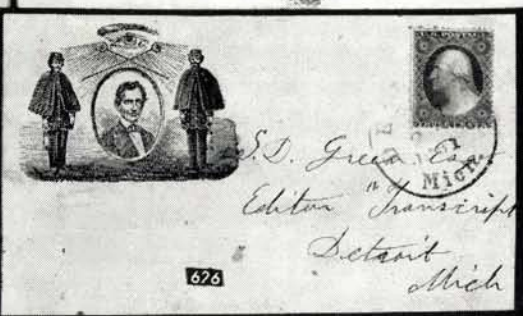 U.S. POSTAGE
S. D. Green Esq.
Editor "Transcript
Detroit
Mich
Mich.
626